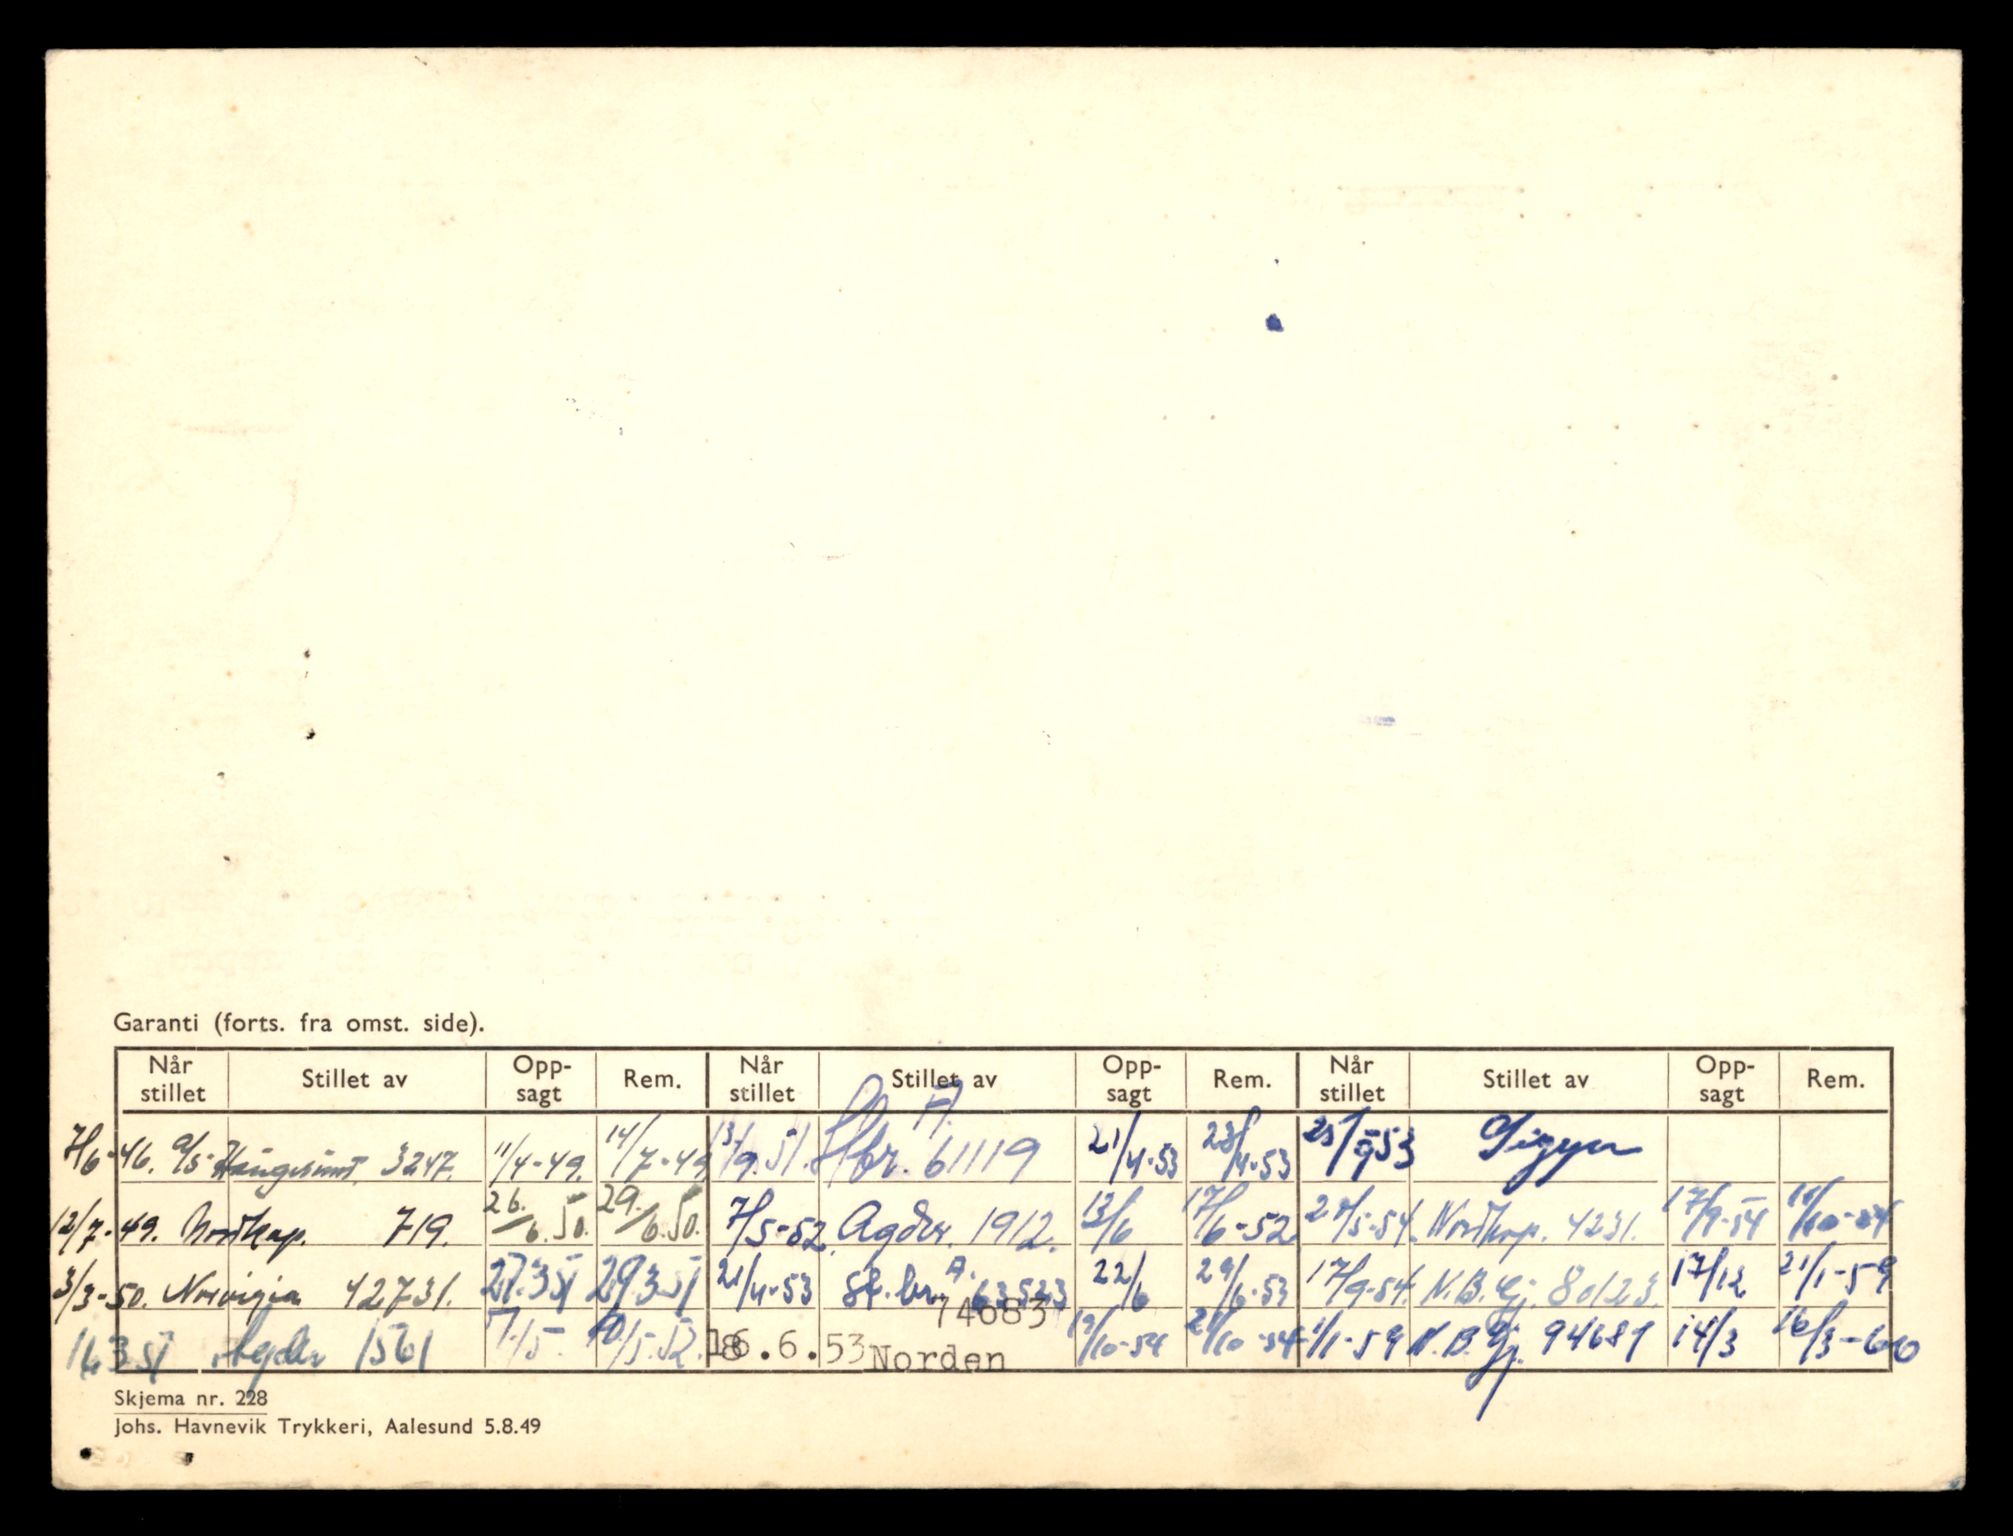 Garanti (forts. fra omst. side).
Når stillet Stillet av Opp-sagt Rem. Når stillet Stillet av Opp-sagt Rem. Når stillet Stillet av Opp-sagt Rem.
7/6-46. a/s Haugesund 3247. 11/4-49. 14/7-49 13/9.51. Hbr. A. 61119 21/4-53 23/4-53 25/9 53 Sigyn
12/7-49. Nordkap. 719. 26./6.50. 29./6.50. 7/5-52 Agder. 1912. 13/6 17/6-52 28/5-54. Nordkap. 4231. 17/9-54 18/10-54
3/3-50. Norvigia 42731. 27.3 51 29.3.51 21/4-53 St. br. A. 63523 22/6 29/6-53 17/9-54. N.B. Gj. 80123. 17/12 21/1-59
16 3 51 Agder 1561 /5- 10/5.52. 18.6.53 Norden 74683 19/10-54 21/10-54 1/1-59 N.B. Gj. 94689 14/3 16/3-60
Skjema nr. 228
Johs. Havnevik Trykkeri, Aalesund 5.8.49